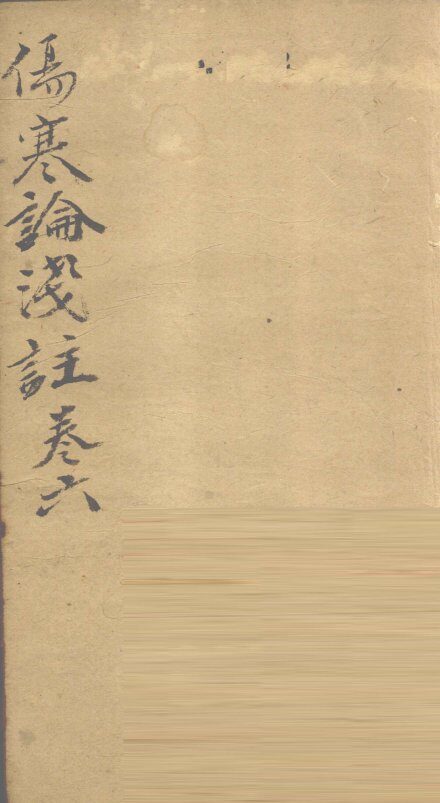 傷寒論淺註卷六